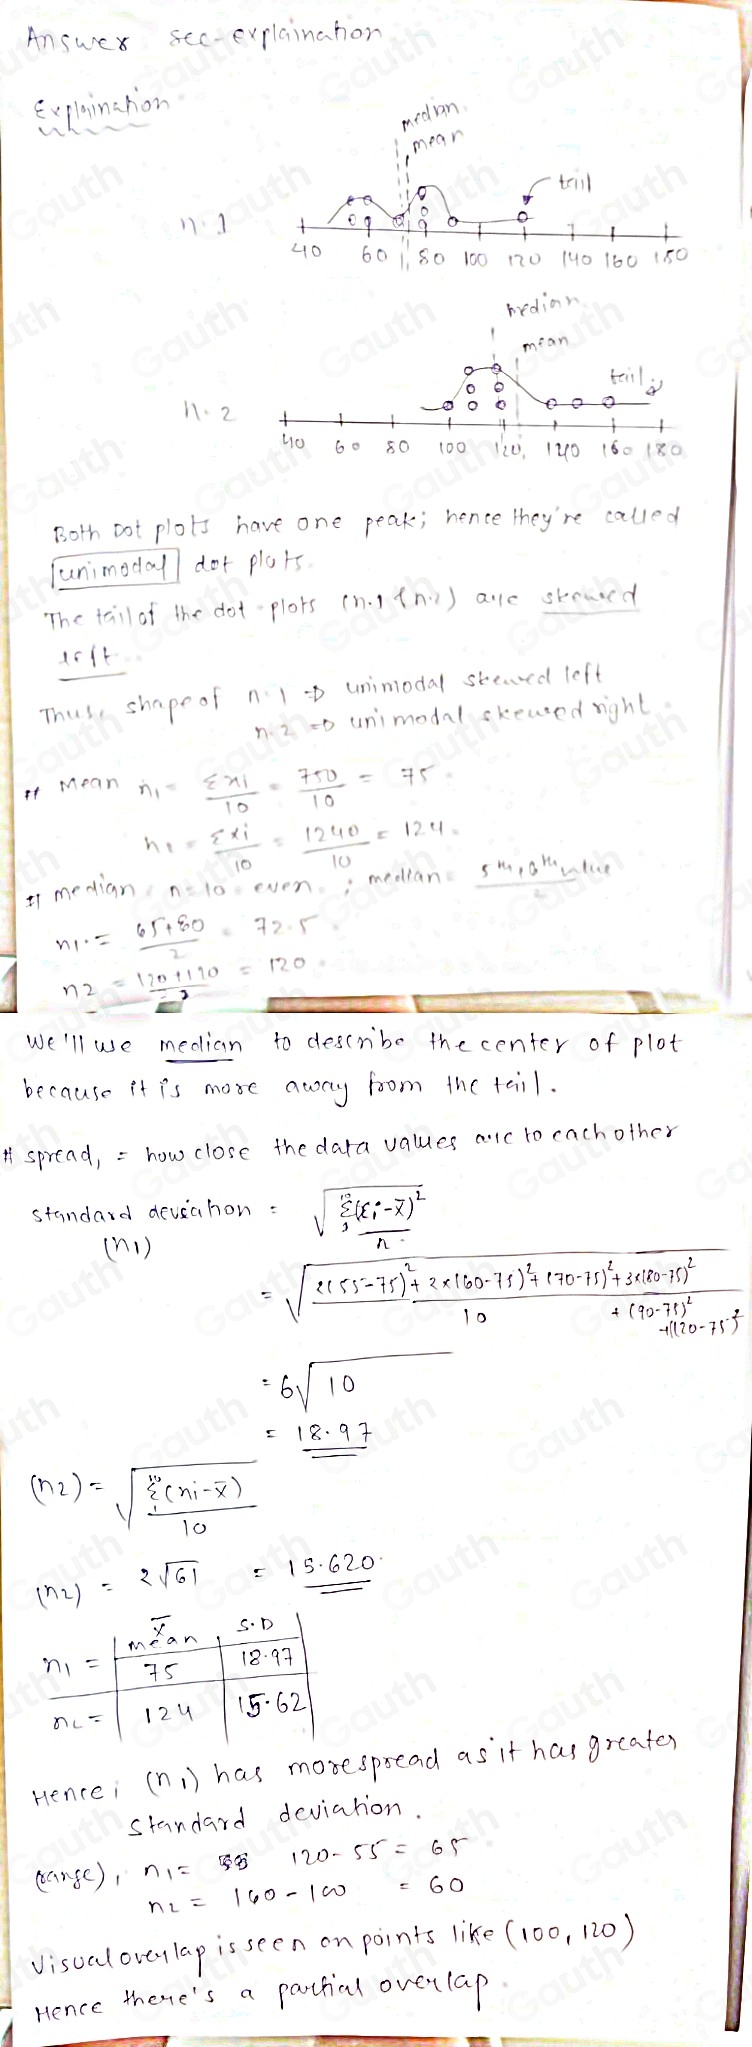 Answer see-explaination
Explaination
median
mean
tail
n.1
40 60 80 100 120 140 160 180
median
mean
tail
n.2
40 60 80 100 120 140 160 180
Both Dot plots have one peak; hence they're called
unimodal dot plots.
The tail of the dot-plots (n.1 & n.2) are skewed
left..
Thus, shape of n.1 ⇒ unimodal skewed left
n.2 ⇒ unimodal skewed right.
# Mean n1 = Σxi/10 = 750/10 = 75.
n2 = Σxi/10 = 1240/10 = 124.
# median n=10 even ; median = 5th, 6th value/2
n1. = 65+80/2 = 72.5.
n2 = 120+120/2 = 120.
We'll use median to describe the center of plot
because it is more away from the tail.
# spread, = how close the data values are to each other
standard deviation = √Σ(xi-x̄)²/n
(n1)
= √2(55-75)²+2×(60-75)²+(70-75)²+3×(80-75)²+(90-75)²+(120-75)²/10
= 6√10
= 18.97
(n2) = √Σ(ni-x̄)/10
(n2) = 2√61 = 15.620.
x̄
mean S.D
n1 = 75 18.97
n2 = 124 15.62
Hence; (n1) has more spread as it has greater
standard deviation.
(range), n1 = 120-55 = 65
n2 = 160-100 = 60
Visual overlap is seen on points like (100, 120)
Hence there's a partial overlap.